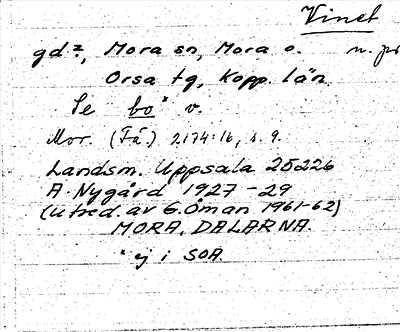 Vinet
gd ², Mora sn, Mora o. n. pr
Orsa tg, Kopp. län.
Se bo * v.
Mor. (Fä.) 2174:16, s. 9.
Landsm. Uppsala 25226
A Nygård 1927-29
(utred. av G. Öman 1961-62)
MORA, DALARNA.
* ej i SOA.